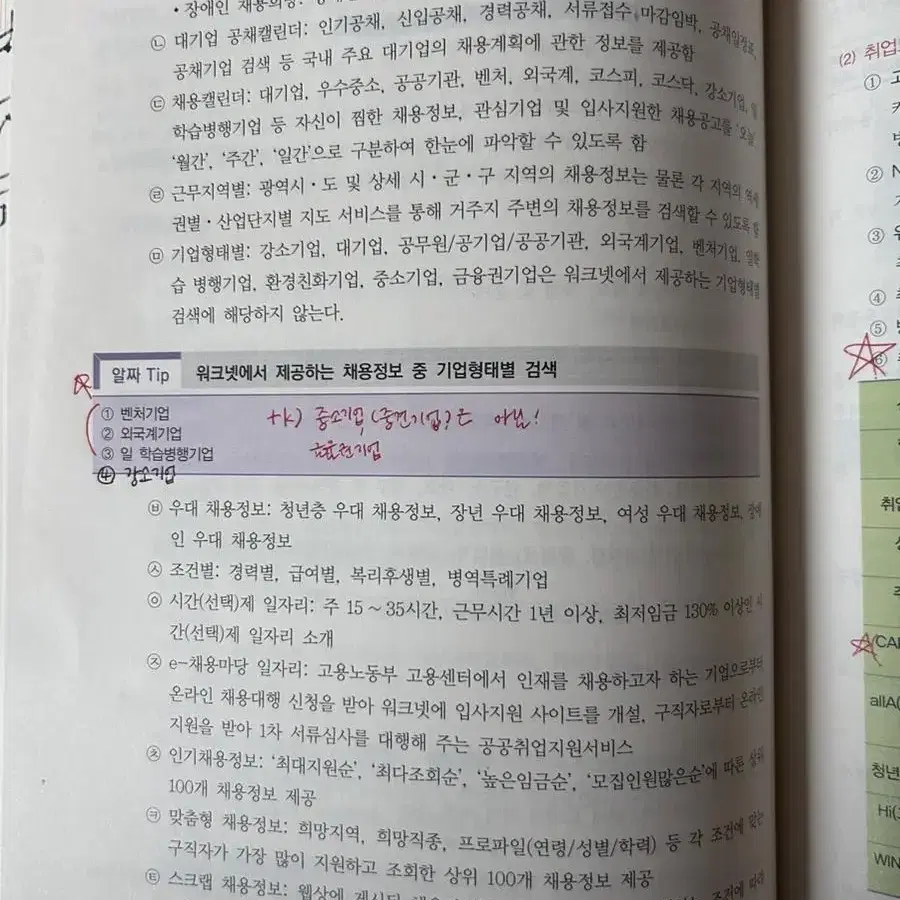 • 장애인 채용희망:
㉡ 대기업 공채캘린더: 인기공채, 신입공채, 경력공채, 서류접수, 마감임박, 공채일정표,
공채기업 검색 등 국내 주요 대기업의 채용계획에 관한 정보를 제공함
㉢ 채용캘린더: 대기업, 우수중소, 공공기관, 벤처, 외국계, 코스피, 코스닥, 강소기업, 일
학습병행기업 등 자신이 찜한 채용정보, 관심기업 및 입사지원한 채용공고를 '오늘',
'월간', '주간', '일간'으로 구분하여 한눈에 파악할 수 있도록 함
㉣ 근무지역별: 광역시·도 및 상세 시·군·구 지역의 채용정보는 물론 각 지역의 역세
권별·산업단지별 지도 서비스를 통해 거주지 주변의 채용정보를 검색할 수 있도록 함
㉤ 기업형태별: 강소기업, 대기업, 공무원/공기업/공공기관, 외국계기업, 벤처기업, 일학
습 병행기업, 환경친화기업, 중소기업, 금융권기업은 워크넷에서 제공하는 기업형태별
검색에 해당하지 않는다.
알짜 Tip 워크넷에서 제공하는 채용정보 중 기업형태별 검색
① 벤처기업
② 외국계기업
③ 일 학습병행기업
④ 강소기업
+k) 중소기업 (중견기업)은 아님!
금융권기업
㉥ 우대 채용정보: 청년층 우대 채용정보, 장년 우대 채용정보, 여성 우대 채용정보, 장애
인 우대 채용정보
㉦ 조건별: 경력별, 급여별, 복리후생별, 병역특례기업
㉧ 시간(선택)제 일자리: 주 15～35시간, 근무시간 1년 이상, 최저임금 130% 이상인 시
간(선택)제 일자리 소개
㉨ e-채용마당 일자리: 고용노동부 고용센터에서 인재를 채용하고자 하는 기업으로부터
온라인 채용대행 신청을 받아 워크넷에 입사지원 사이트를 개설, 구직자로부터 온라인
지원을 받아 1차 서류심사를 대행해 주는 공공취업지원서비스
㉩ 인기채용정보: '최대지원순', '최다조회순', '높은임금순', '모집인원많은순'에 따른 상위
100개 채용정보 제공
㉪ 맞춤형 채용정보: 희망지역, 희망직종, 프로파일(연령/성별/학력) 등 각 조건에 맞는
구직자가 가장 많이 지원하고 조회한 상위 100개 채용정보 제공
㉫ 스크랩 채용정보: 웹상에 게시된
(2) 취업
①
②
③
④
⑤
⑥
취업
CAP
allA(
청년
Hi(
WIN